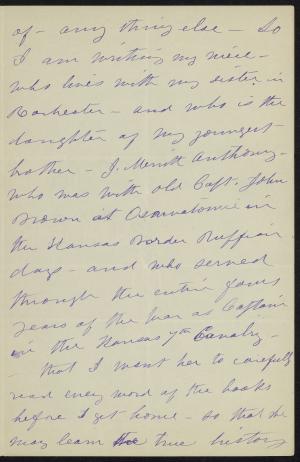 of - any thing else - So
I am writing my niece -
who lives with my sister in
Rochester - and who is the
daughter of my youngest
brother - J. Merritt Anthony -
who was with old Capt. John
Brown at Osawatomie in
the Kansas Border Ruffian
days - and who served
through the entire four
years of the War as Captain
in the Kansas 7th Cavalry -
that I want her to carefully
read every word of the books
before I get home - so that she
may learn the true history